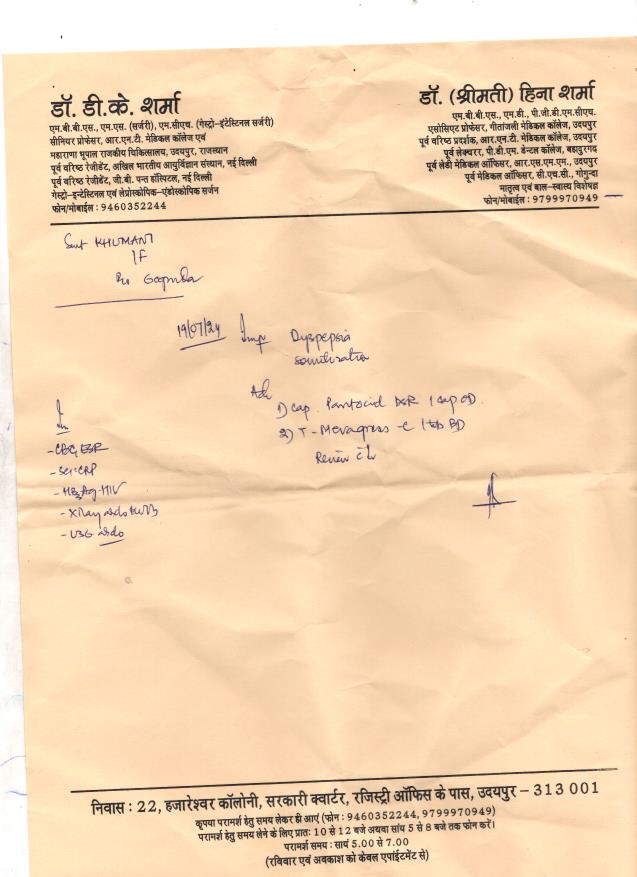 डॉ. डी.के. शर्मा
एम.बी.बी.एस., एम.एस. (सर्जरी), एम.सीएच. (गेस्ट्रो-इंटेस्टिनल सर्जरी)
सीनियर प्रोफेसर, आर.एन.टी. मेडिकल कॉलेज एवं
महाराणा भूपाल राजकीय चिकित्सालय, उदयपुर, राजस्थान
पूर्व वरिष्ठ रेजीडेंट, अखिल भारतीय आयुर्विज्ञान संस्थान, नई दिल्ली
पूर्व वरिष्ठ रेजीडेंट, जी.बी. पन्त हॉस्पिटल, नई दिल्ली
गेस्ट्रो-इन्टेस्टिनल एवं लेप्रोस्कोपिक-एंडोस्कोपिक सर्जन
फोन/मोबाईल : 9460352244
डॉ. (श्रीमती) हिना शर्मा
एम.बी.बी.एस., एम.डी., पी.जी.डी.एम.सीएच.
एसोसिएट प्रोफेसर, गीतांजली मेडिकल कॉलेज, उदयपुर
पूर्व वरिष्ठ प्रदर्शक, आर.एन.टी. मेडिकल कॉलेज, उदयपुर
पूर्व लेक्चरर, पी.डी.एम. डेन्टल कॉलेज, बहादुरगढ़
पूर्व लेडी मेडिकल ऑफिसर, आर.एस.एम.एम., उदयपुर
पूर्व मेडिकल ऑफिसर, सी.एच.सी., गोगुन्दा
मातृत्व एवं बाल-स्वास्थ्य विशेषज्ञ
फोन/मोबाईल : 9799970949
Smt KHUMANI
19/07/24 Imp Dyspepsia
Adv
1) Cap. Pantocid DSR 1 cap OD.
2) T- -C 1 tab BD
Review
- CBC, ESR
- CRP
- HBsAg HIV
- XRay
- USG
निवास : 22, हजारेश्वर कॉलोनी, सरकारी क्वार्टर, रजिस्ट्री ऑफिस के पास, उदयपुर - 313 001
कृपया परामर्श हेतु समय लेकर ही आएं (फोन : 9460352244, 9799970949)
परामर्श हेतु समय लेने के लिए प्रातः 10 से 12 बजे अथवा सांय 5 से 8 बजे तक फोन करें।
परामर्श समय : सायं 5.00 से 7.00
(रविवार एवं अवकाश को केवल एपाईंटमेंट से)